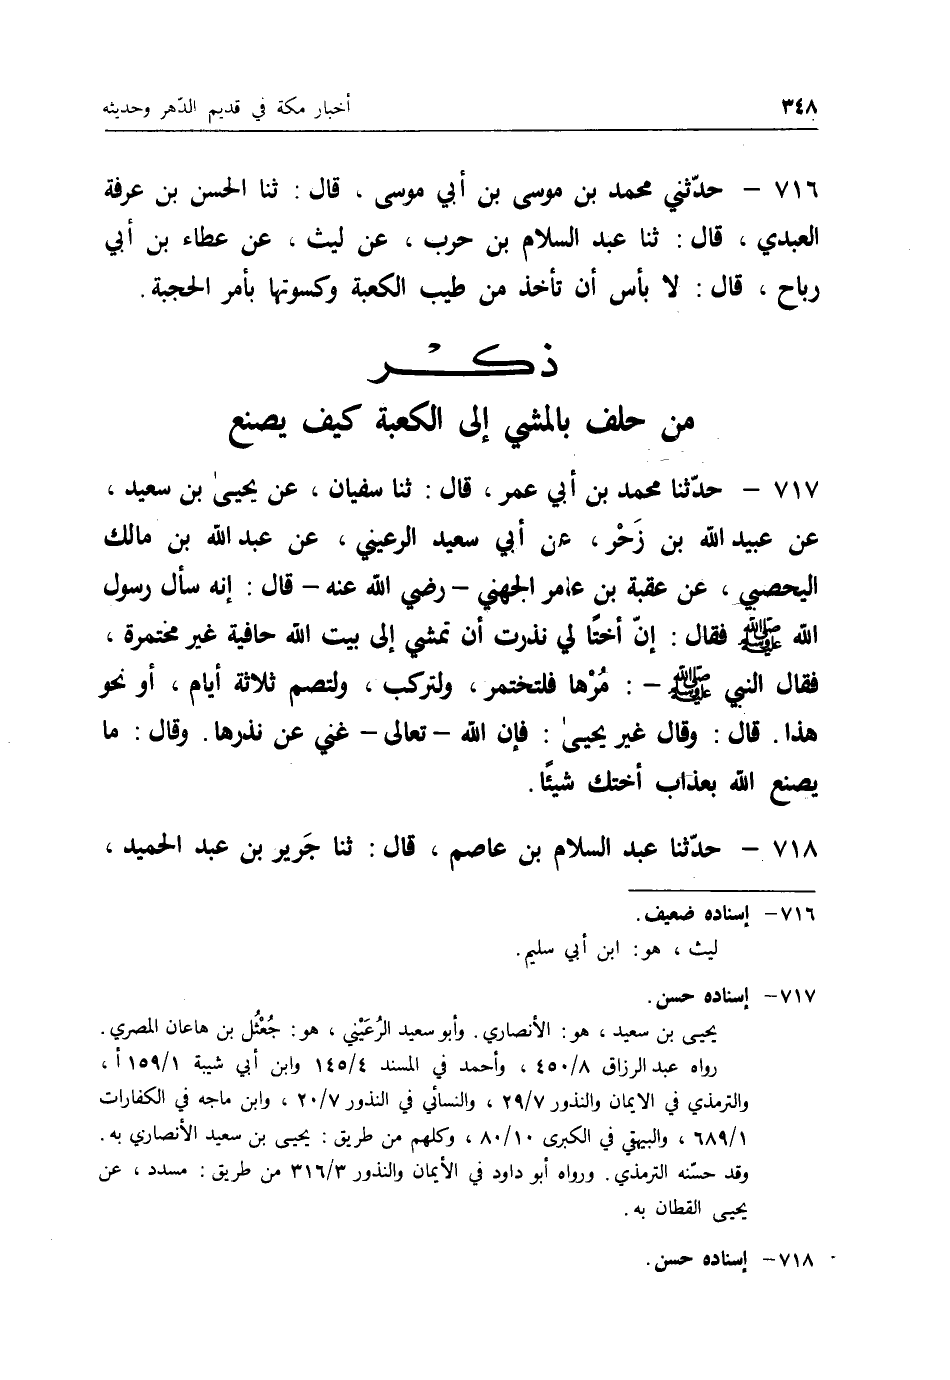 ٣٤٨
أخبار مكة في قديم الدّهر وحديثه
٧١٦ – حدّثني محمد بن موسى بن أبي موسى ، قال : ثنا الحسن بن عرفة
العبدي ، قال : ثنا عبد السلام بن حرب ، عن ليث ، عن عطاء بن أبي
رباح ، قال : لا بأس أن تأخذ من طيب الكعبة وكسوتها بأمر الحجبة .
ذكْر
من حلف بالمشي إلى الكعبة كيف يصنع
٧١٧ – حدّثنا محمد بن أبي عمر ، قال : ثنا سفيان ، عن يحيىٰ بن سعيد ،
عن عبيد الله بن زَحْر ، عن أبي سعيد الرعيني ، عن عبد الله بن مالك
اليحصبي ، عن عقبة بن عامر الجهني – رضي الله عنه – قال : إنه سأل رسول
الله ﷺ فقال : إنّ أختًا لي نذرت أن تمشي إلى بيت الله حافية غير مختمرة ،
فقال النبي ﷺ – : مُرْها فلتختمر ، ولتركب ، ولتصم ثلاثة أيام ، أو نحو
هذا . قال : وقال غير يحيىٰ : فإن الله – تعالى – غني عن نذرها . وقال : ما
يصنع الله بعذاب أختك شيئًا .
٧١٨ – حدّثنا عبد السلام بن عاصم ، قال : ثنا جَرير بن عبد الحميد ،
٧١٦– إسناده ضعيف .
ليث ، هو : ابن أبي سليم .
٧١٧– إسناده حسن .
يحيى بن سعيد ، هو : الأنصاري . وأبو سعيد الرُعَيْني ، هو : جُعْثُل بن هاعان المصري .
رواه عبد الرزاق ٤٥٠/٨ ، وأحمد في المسند ١٤٥/٤ وابن أبي شيبة ١٥٩/١ أ ،
والترمذي في الايمان والنذور ٢٩/٧ ، والنسائي في النذور ٢٠/٧ ، وابن ماجه في الكفارات
٦٨٩/١ ، والبيهقي في الكبرى ٨٠/١٠ ، وكلهم من طريق : يحيى بن سعيد الأنصاري به .
وقد حسّنه الترمذي . ورواه أبو داود في الأيمان والنذور ٣١٦/٣ من طريق : مسدد ، عن
يحيى القطان به .
٧١٨– إسناده حسن .